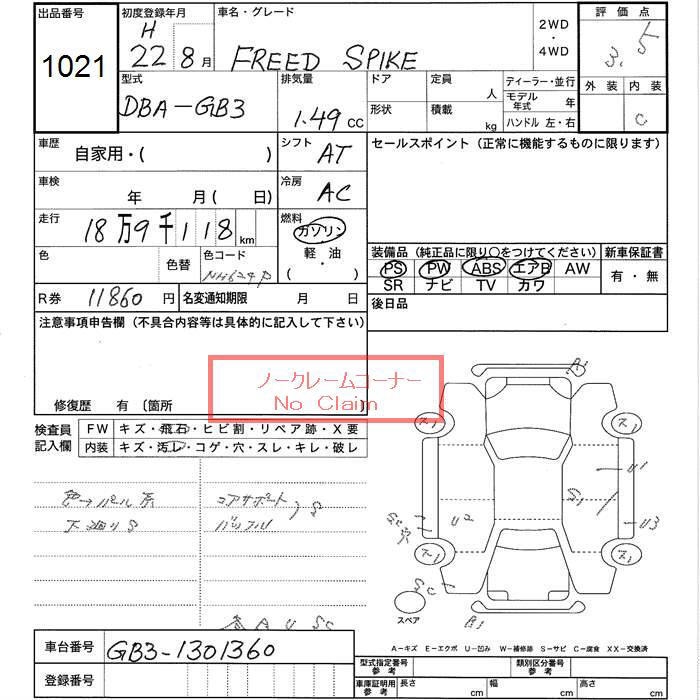 出品番号
1021
初度登録年月
H
22 8月
車名・グレード
FREED SPIKE
2WD
・
4WD
評価点
3.5
外装 内装
C
型式
DBA-GB3
排気量
1.49 cc
ドア
定員
人
形状
積載
kg
ディーラー・並行
モデル年式 年
ハンドル 左・右
車歴
自家用・( )
シフト
AT
セールスポイント (正常に機能するものに限ります)
車検
年 月( 日)
冷房
AC
走行
18万9千118km
燃料
ガソリン
軽・油
・( )
色
色替
色コード
NH624P
装備品 (純正品に限り○をつけてください)
PS PW ABS エアB AW
SR ナビ TV カワ
新車保証書
有・無
R券 11860 円
名変通知期限 月 日
後日品
注意事項申告欄 (不具合内容等は具体的に記入して下さい)
ノークレームコーナー
No Claim
修復歴 有 〔箇所
検査員
記入欄
FW キズ・飛石・ヒビ割・リペア跡・X要
内装 キズ・汚レ・コゲ・穴・スレ・キレ・破レ
色→パール系
下廻りS
コアサポート
バッフル
S
A1
ス1
ス1
U1
G1
U2
U3
ス1
ス1
SC
B1
スペア
A-キズ E-エクボ U-凹み W-補修跡 S-サビ C-腐食 XX-交換済
車台番号
GB3-1301360
登録番号
型式指定番号
参考
類別区分番号
参考
車庫証明用
参考
長さ cm
幅 cm
高さ cm